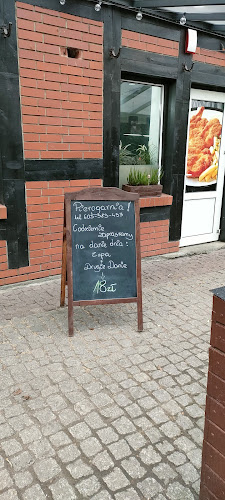 Pierogarnia!
tel. 605-563-453
Codziennie
zapraszamy
na danie dnia:
Zupa
+
Drugie Danie
18zł